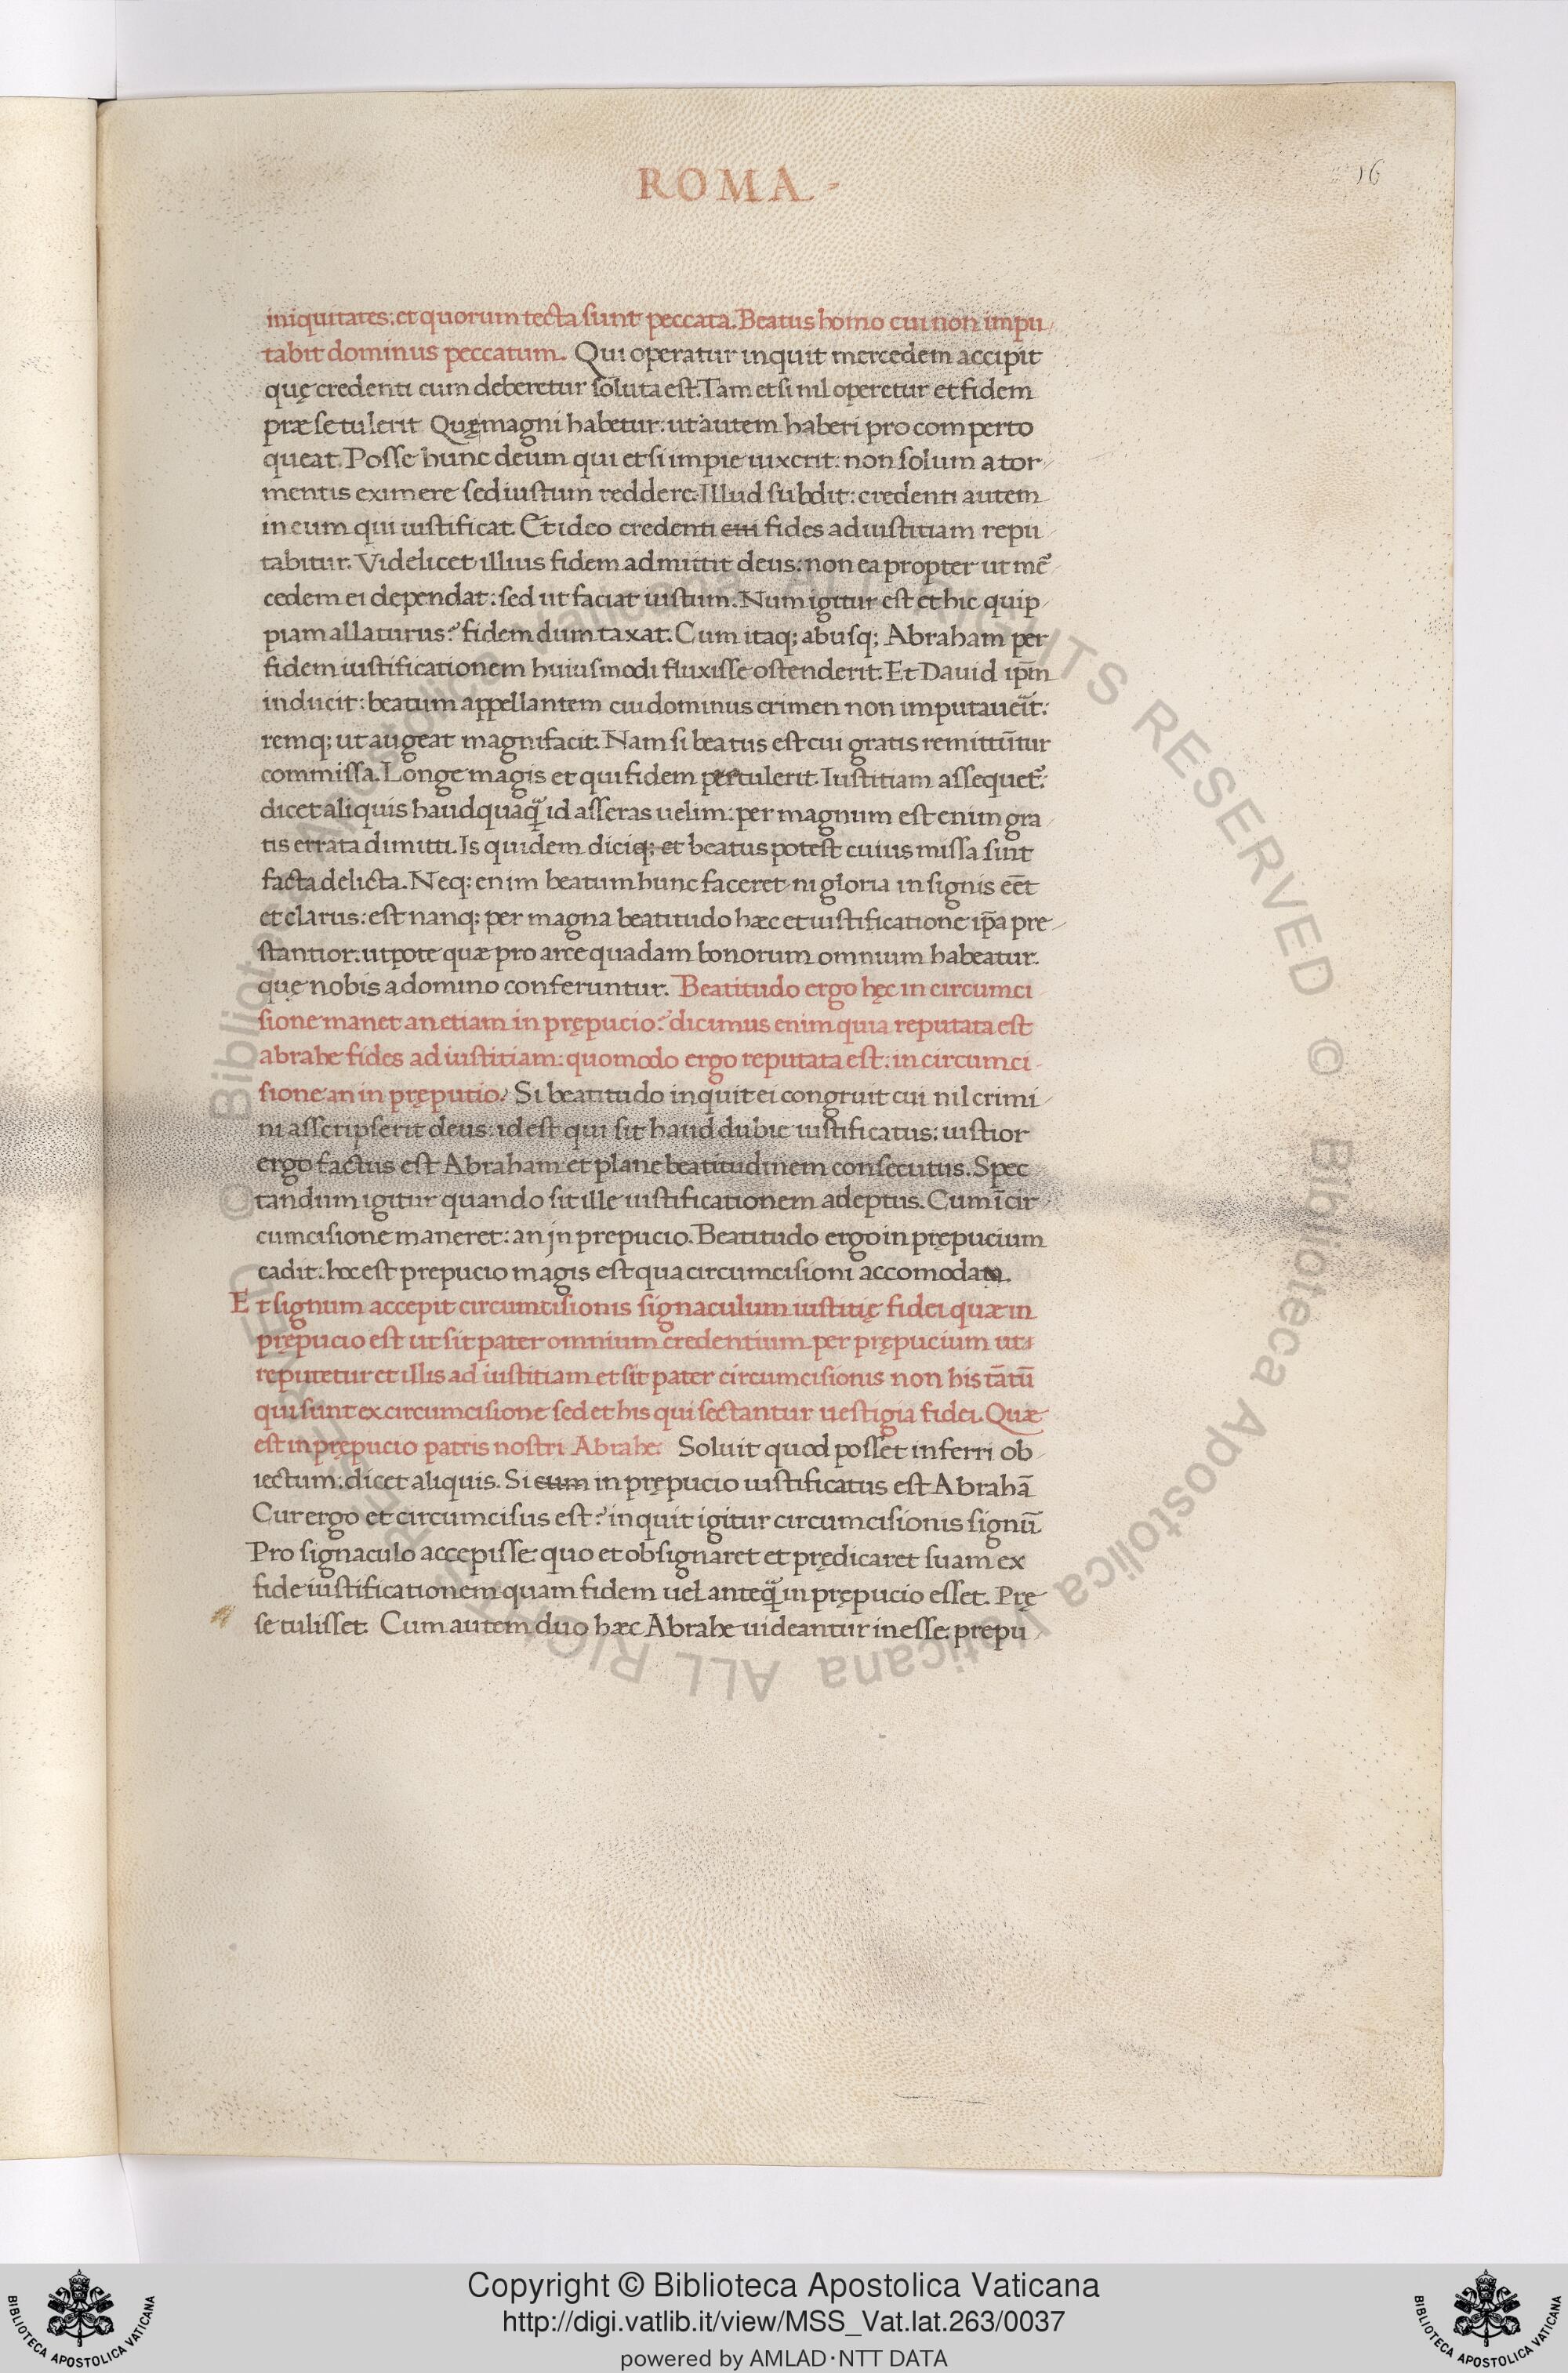 ROMA
16
iniquitates: et quorum tecta sunt peccata. Beatus homo cui non impu
tabit dominus peccatum. Qui operatur inquit mercedem accipit
quę credenti cum deberetur soluta est. Tam etsi nil operetur et fidem
præ se tulerit Quę magni habetur: ut autem haberi pro comperto
queat. Posse hunc deum qui etsi impie uixerit: non solum a tor
mentis eximere sed iustum reddere. Illud subdit: credenti autem
in eum qui iustificat. Et ideo credenti cui fides ad iustitiam repu
tabitur. Videlicet illius fidem admittit deus: non ea propter ut mer̃
cedem ei dependat: sed ut faciat iustum. Num igitur est et hic quip
piam allaturus? fidem dum taxat. Cum itaq; abusq; Abraham per
fidem iustificationem huiusmodi fluxisse ostenderit. Et Dauid ip̃m
inducit: beatum appellantem cui dominus crimen non imputauerit:
remq; ut augeat magnifacit. Nam si beatus est cui gratis remittũtur
commissa. Longe magis et qui fidem pertulerit. Iustitiam assequet̃:
dicet aliquis haudquaq̃ id asseras uelim: per magnum est enim gra
tis errata dimitti. Is quidem diciq; et beatus potest cuius missa sunt
facta delicta. Neq: enim beatum hunc faceret ni gloria insignis eẽt
et clarus: est nanq; per magna beatitudo hæc et iustificatione ip̃a pre
stantior. utpote quæ pro arce quadam bonorum omnium habeatur.
quę nobis a domino conferuntur. Beatitudo ergo hęc in circumci
sione manet an etiam in prępucio? dicimus enim quia reputata est
abrahe fides ad iustitiam: quomodo ergo reputata est: in circumci
sione an in pręputio? Si beatitudo inquit ei congruit cui nil crimi
ni asscripserit deus: id est qui sit haud dubie iustificatus: iustior
ergo factus est Abraham et plane beatitudinem consecutus. Spec
tandum igitur quando sit ille iustificationem adeptus. Cum ĩ cir
cumcisione maneret: an in prepucio. Beatitudo ergo in prępucium
cadit. hoc est prepucio magis est qua circumcisioni
Et signum accepit circumcisionis signaculum iustitię fidei quæ in
prępucio est ut sit pater omnium credentium per prępucium ut
reputetur et illis ad iustitiam et sit pater circumcisionis non his tãtũ
qui sunt ex circumcisione sed et his qui sectantur uestigia fidei. Quæ
est in prępucio patris nostri Abrahe. Soluit quod posset inferri ob
iectum: dicet aliquis. Si cum in prępucio iustificatus est Abrahã
Cur ergo et circumcisus est? inquit igitur circumcisionis signũ
Pro signaculo accepisse quo et obsignaret et prędicaret suam ex
fide iustificationem quam fidem uel anteq̃ in prępucio esset. Prę
se tulisset. Cum autem duo hæc Abrahe uideantur inesse: prepu
© Biblioteca Apostolica Vaticana ALL RIGHTS RESERVED
© Biblioteca Apostolica Vaticana ALL RIGHTS RESERVED
Copyright © Biblioteca Apostolica Vaticana
http://digi.vatlib.it/view/MSS_Vat.lat.263/0037
powered by AMLAD·NTT DATA
BIBLIOTECA APOSTOLICA VATICANA
BIBLIOTECA APOSTOLICA VATICANA